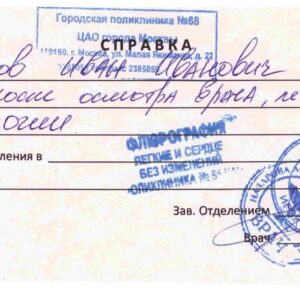 Городская поликлиника №68
ЦАО города Москвы
г. Москва, ул. Малая Якиманка, д. 22
СПРАВКА
ов Иван Иванович
осмотра врача,
ФЛЮРОГРАФИЯ
ЛЕГКИЕ И СЕРДЦЕ
БЕЗ ИЗМЕНЕНИЙ
ОЛИКЛИНИКА №
ления в
Зав. Отделением
Врач